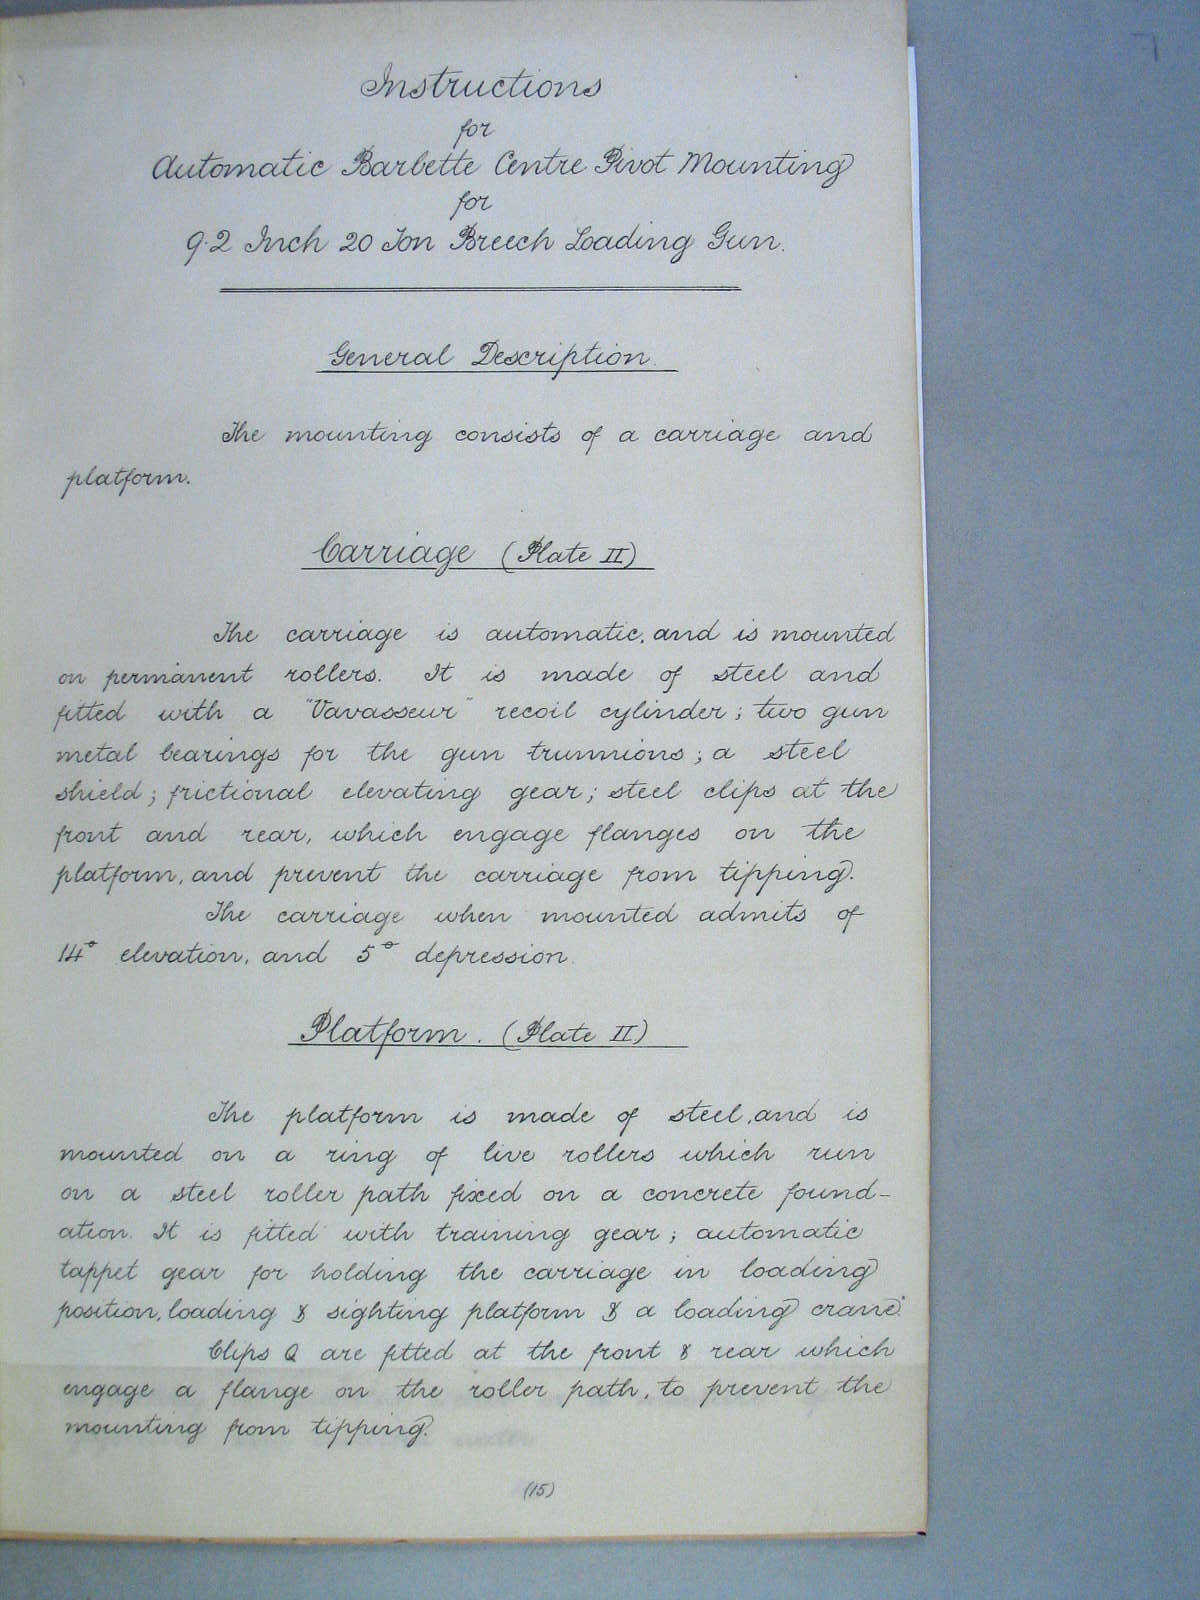 Instructions
for
Automatic Barbette Centre Pivot Mounting
for
9.2 Inch 20 Ton Breech Loading Gun.
General Description.
The mounting consists of a carriage and
platform.
Carriage (Plate II)
The carriage is automatic, and is mounted
on permanent rollers. It is made of steel and
fitted with a "Vavasseur" recoil cylinder; two gun
metal bearings for the gun trunnions; a steel
shield; frictional elevating gear; steel clips at the
front and rear, which engage flanges on the
platform, and prevent the carriage from tipping.
The carriage when mounted admits of
14° elevation, and 5° depression.
Platform. (Plate II)
The platform is made of steel, and is
mounted on a ring of live rollers which run
on a steel roller path fixed on a concrete found-
ation. It is fitted with training gear; automatic
tappet gear for holding the carriage in loading
position, loading & sighting platform & a loading crane.
Clips Q are fitted at the front & rear which
engage a flange on the roller path, to prevent the
mounting from tipping.
(15)